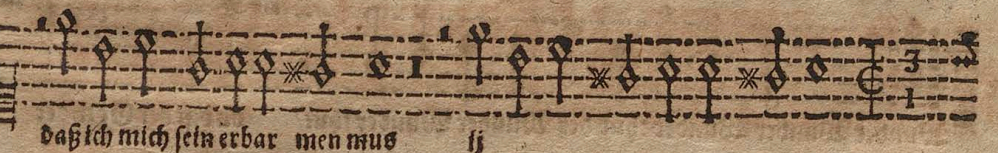 3
1
daß ich mich ſein erbar men mus ij